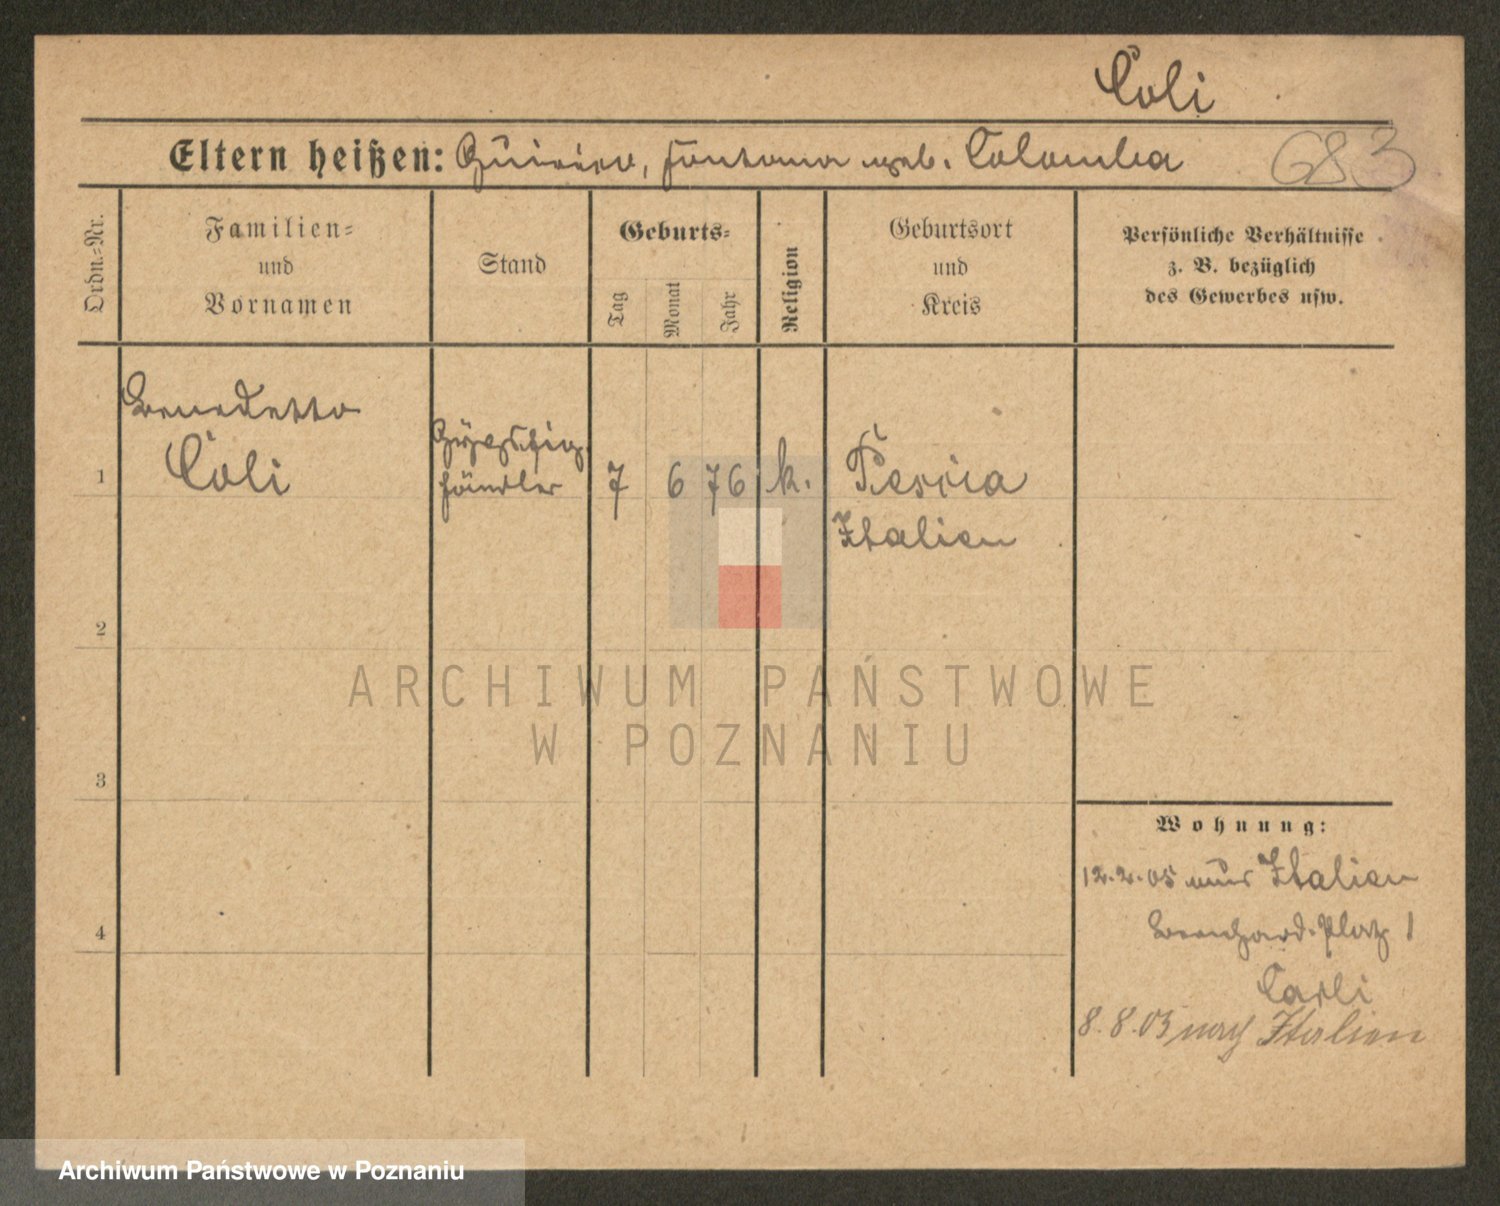 Coli
Eltern heißen: geb. Colomba 683
Ordn.=Nr.
Familien=
und
Vornamen
Stand
Geburts=
Tag
Monat
Jahr
Religion
Geburtsort
und
Kreis
Persönliche Verhältnisse
z. B. bezüglich
des Gewerbes usw.
Benedetto
Coli
Gypsfig.
händler
1
7 6 76 k.
Pescia
Italien
2
3
4
Wohnung:
12.2.05 aus Italien
Bernhard. Platz 1
Carli
8.8.05 nach Italien
ARCHIWUM PAŃSTWOWE
W POZNANIU
Archiwum Państwowe w Poznaniu